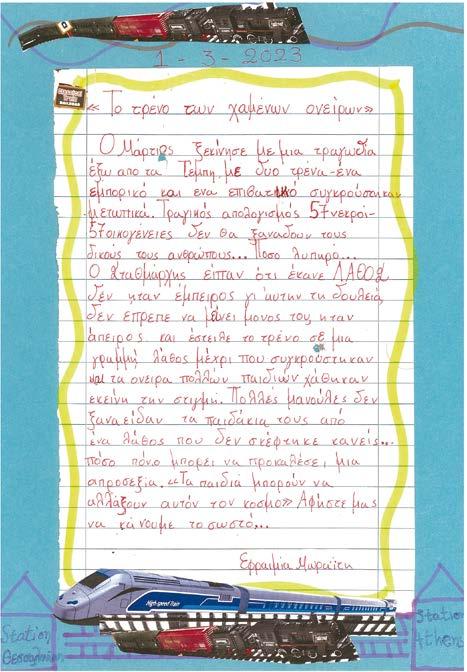 1 - 3 - 2023
« Το τρένο των χαμένων ονείρων»
Ο Μάρτιος ξεκίνησε με μια τραγωδία
έξω απο τα Τέμπη, με δυο τρένα-ένα
εμπορικό και ενα επιβατικό συγκρούστηκαν
μετωπικά. Τραγικός απολογισμός 57 νεκροί-
57 οικογένειες δεν θα ξαναδουν τους
δικούς τους ανθρώπους... Ποσο λυπηρό...
Ο Σταθμάρχης είπαν ότι έκανε ΛΑΘΟΣ
δεν ηταν έμπειρος γι'αυτην τη δουλειά,
δεν επρεπε να μείνει μονος του, ηταν
άπειρος και έστειλε το τρένο σε μια
γραμμή λάθος μέχρι που συγκρούστηκαν
και τα ονειρα πολλών παιδιών χάθηκαν
εκείνη την στιγμή. Πολλές μανούλες δεν
ξαναείδαν τα παιδάκια τους από
ένα λάθος που δεν σκέφτηκε κανείς...
πόσο πόνο μπορεί να προκαλέσει, μια
απροσεξία. «Τα παιδιά μπορούν να
αλλάξουν αυτόν τον κοσμο» Αφήστε μας
να κάνουμε το σωστό...
Εφραιμία
High-speed Train
Station
Station
Athens